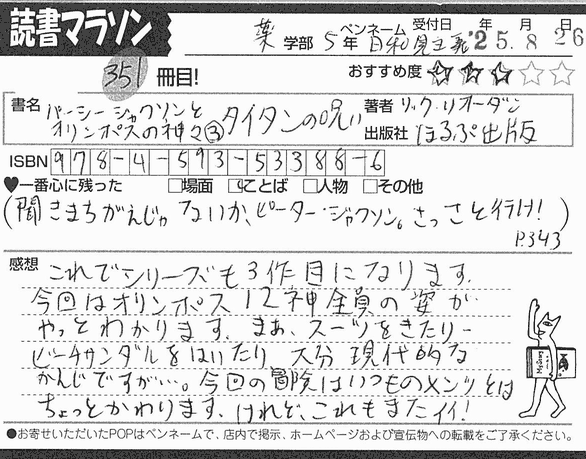 読書マラソン
薬 学部 5年 ペンネーム 日和見主義 受付日 '25年 8月 26日
351冊目!
おすすめ度 ★★★☆☆
書名 パーシージャクソンとオリンポスの神々③タイタンの呪い
著者 リック・リオーダン
出版社 ほるぷ出版
ISBN 978-4-593-53388-6
♥一番心に残った □場面 ☑ことば □人物 □その他
(聞きまちがえじゃないか、ピーター・ジャクソン。さっさと行け!)
P.343
感想
これでシリーズも3作目になります。
今回はオリンポス12神全員の姿が
やっとわかります。まあ、スーツをきたり
ビーチサンダルをはいたり 大分現代的な
かんじですが…。今回の冒険はいつものメンツとは
ちょっとかわります。けれど、これもまたイイ!
●お寄せいただいたPOPはペンネームで、店内で掲示、ホームページおよび宣伝物への転載をご了承ください。